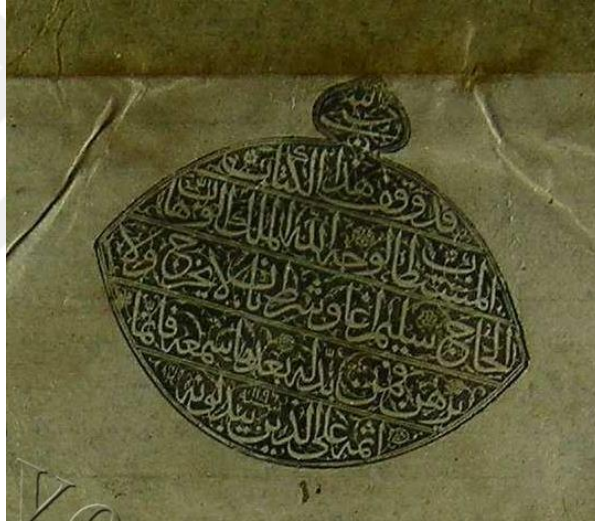 الله
قد وقف هذا الكتاب
المستطاب لوجه الله الملك الوهاب
الحاج سليم اغا وشرط بان لا يخرج ولا
يرهن فمن بدله بعد ما سمعه فانما
اثمه على الذين يبدلونه